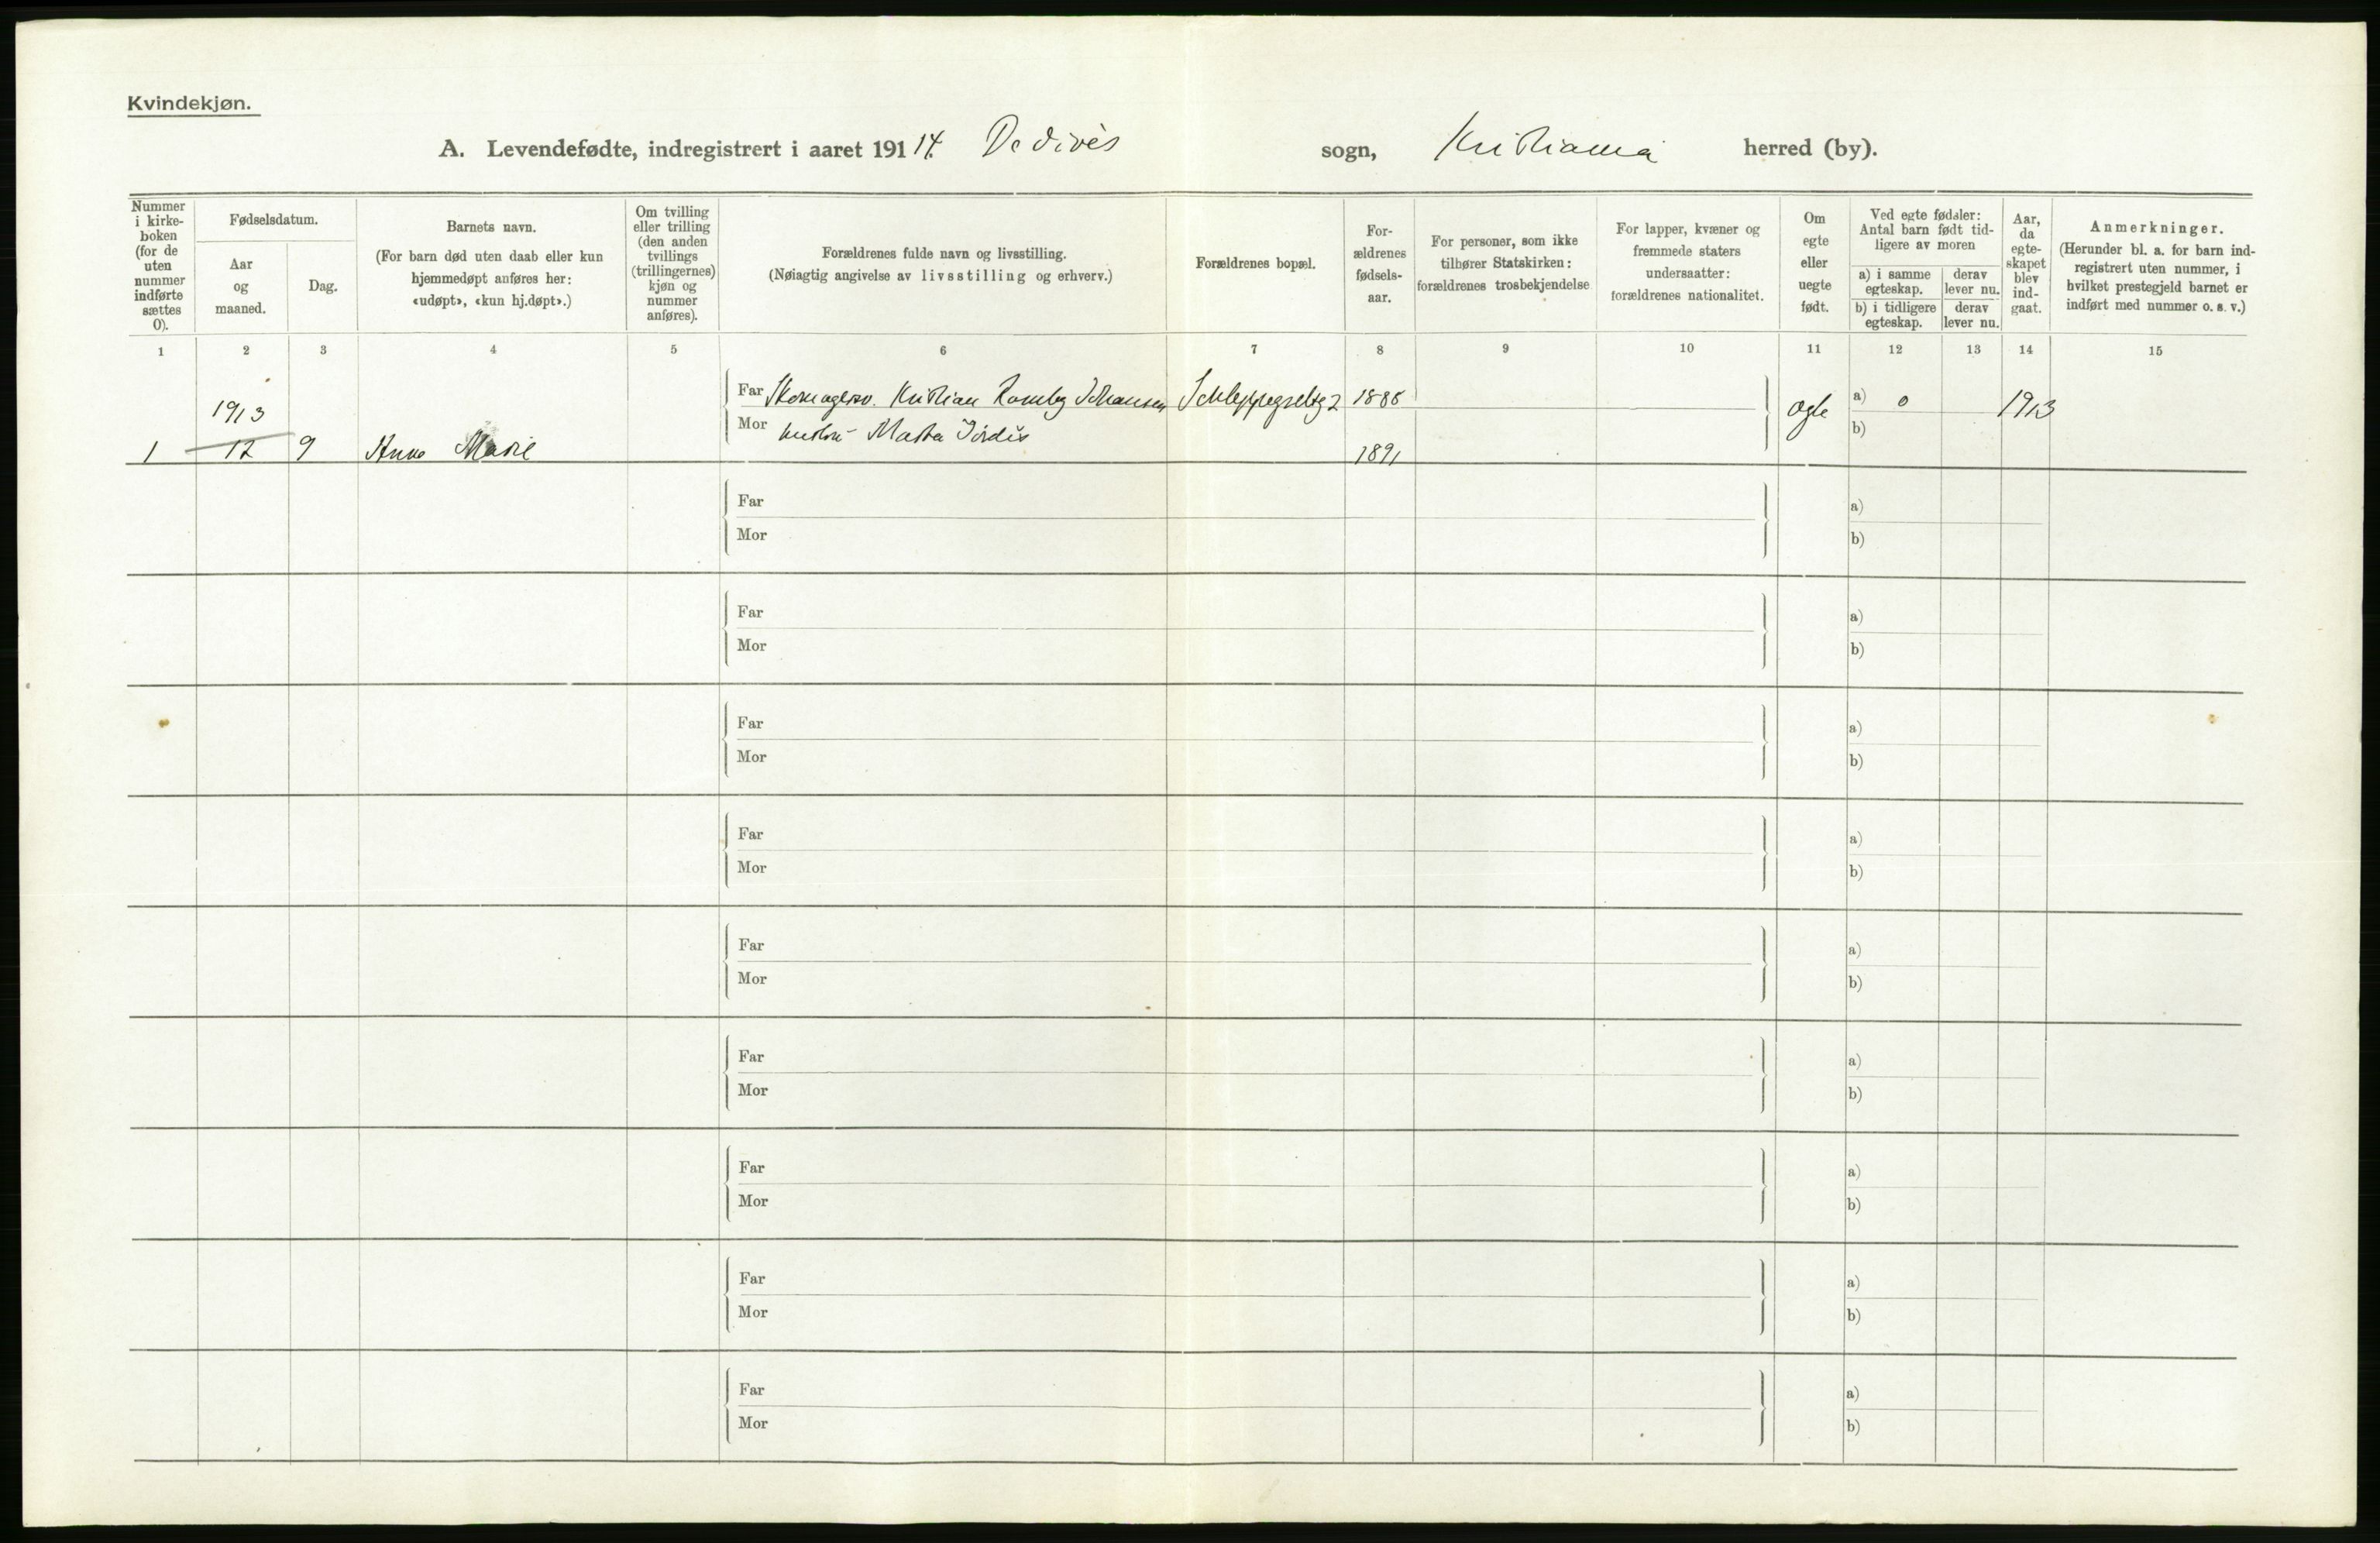 Kvindekjøn.
A. Levendefødte, indregistrert i aaret 191 14. De døves sogn, Kristiania herred (by).
Nummer i kirke- boken (for de uten nummer indførte sættes 0).
Fødselsdatum.
Aar og maaned.
Dag.
Barnets navn.
(For barn død uten daab eller kun hjemmedøpt anføres her: «udøpt», «kun hj.døpt».)
Om tvilling eller trilling (den anden tvillings (trillingernes) kjøn og nummer anføres).
Forældrenes fulde navn og livsstilling.
(Nøiagtig angivelse av livsstilling og erhverv.)
Forældrenes bopæl.
For- ældrenes fødsels- aar.
For personer, som ikke tilhører Statskirken: forældrenes trosbekjendelse
For lapper, kvæner og fremmede staters undersaatter: forældrenes nationalitet.
Om egte eller uegte født.
Ved egte fødsler: Antal barn født tid- ligere av moren
a) i samme egteskap.
derav lever nu.
b) i tidligere egteskap.
derav lever nu.
Aar, da egte- skapet blev ind- gaat.
Anmerkninger.
(Herunder bl. a. for barn ind- registrert uten nummer, i hvilket prestegjeld barnet er indført med nummer o. s. v.)
1 2 3 4 5 6 7 8 9 10 11 12 13 14 15
1913
Far Kristian Johansen Schleppegrellsg 2 1886 a) 0 1913
Mor hustru Marta Jordis Ægte b)
1 12 9 Anna Marie 1891
Far a)
Mor b)
Far a)
Mor b)
Far a)
Mor b)
Far a)
Mor b)
Far a)
Mor b)
Far a)
Mor b)
Far a)
Mor b)
Far a)
Mor b)
Far a)
Mor b)